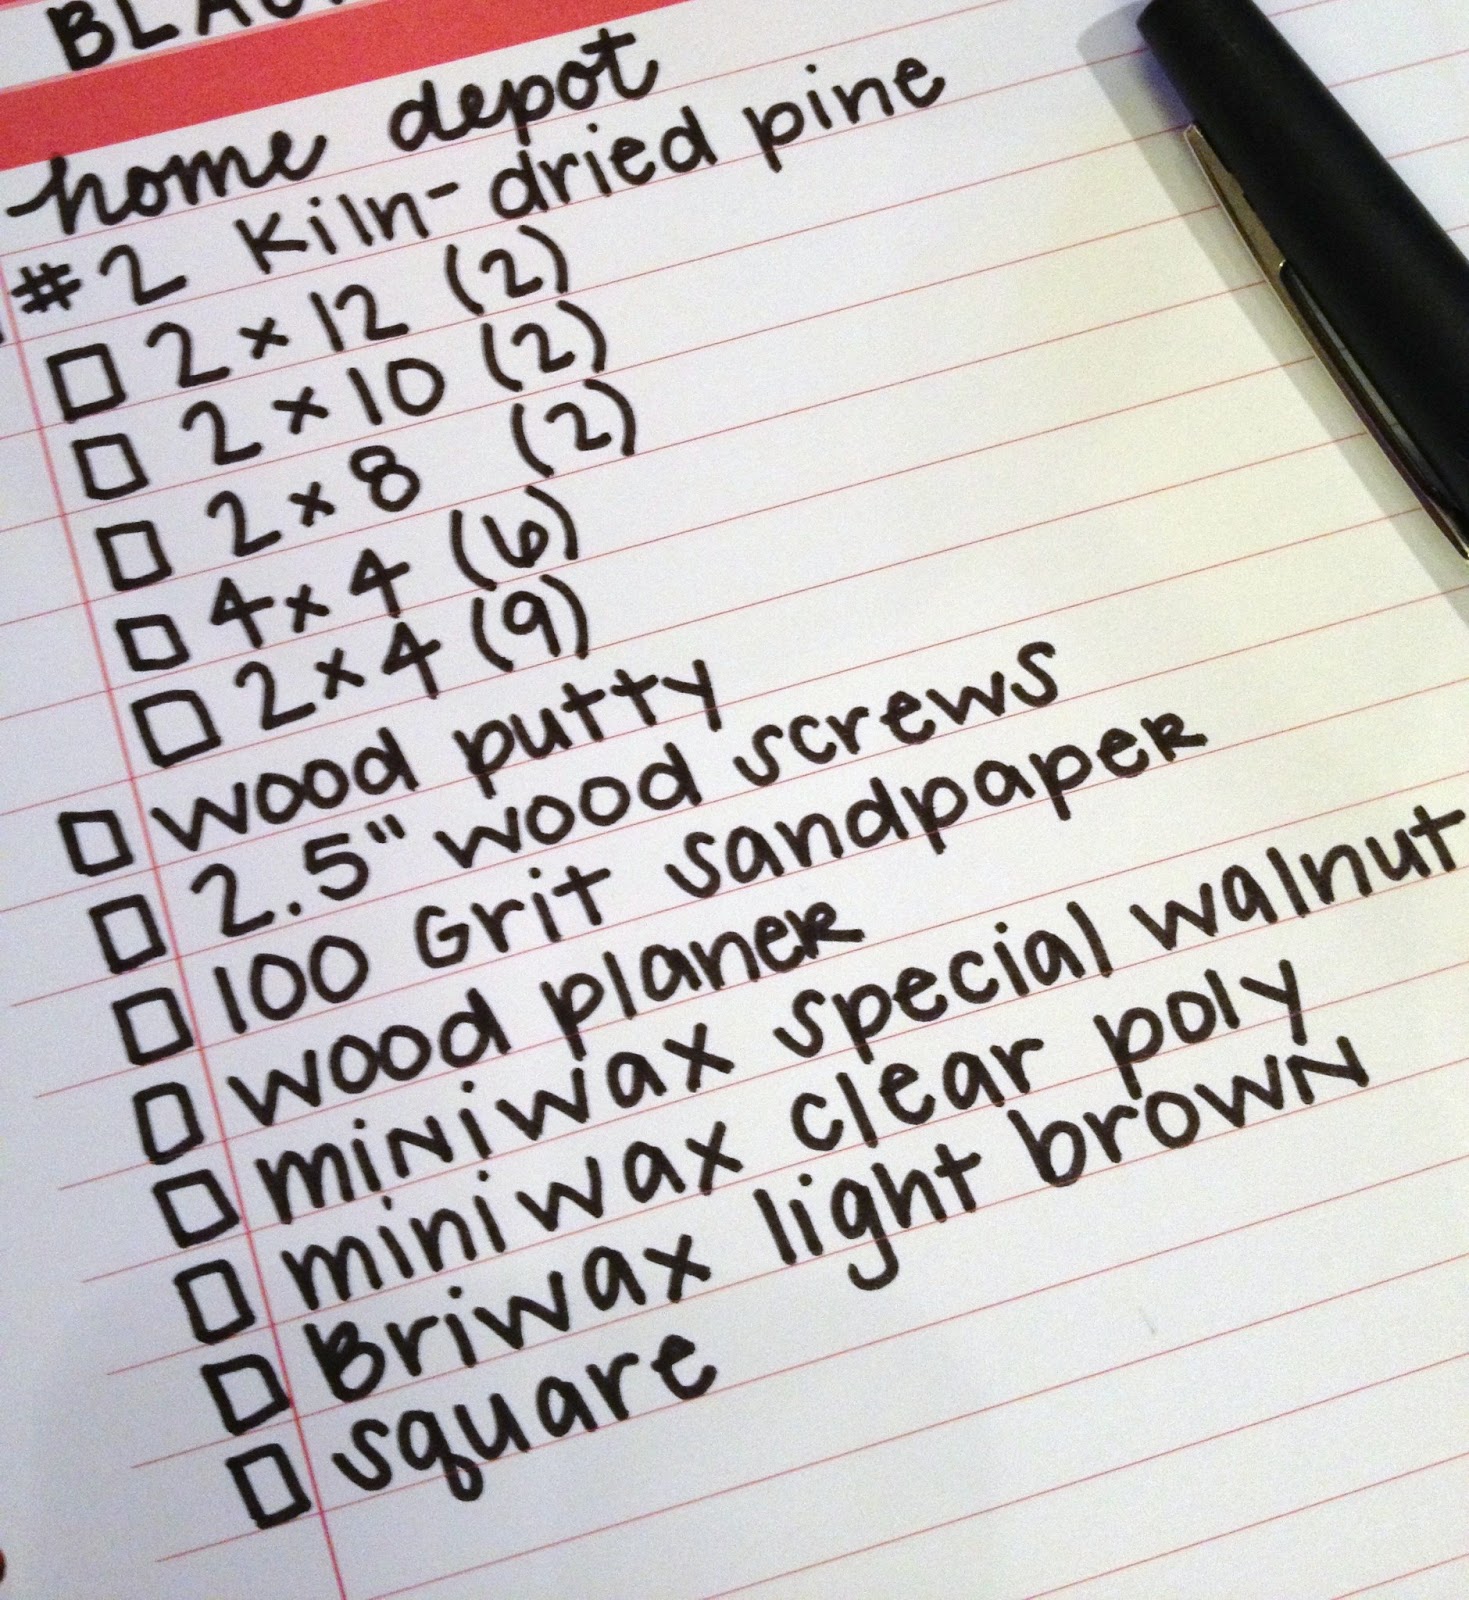 home depot
#2 Kiln-dried pine
2 x 12 (2)
2 x 10 (2)
2 x 8 (2)
4 x 4 (6)
2 x 4 (9)
wood putty
2.5" wood screws
100 Grit sandpaper
wood planer
miniwax special walnut
miniwax clear poly
Briwax light brown
square